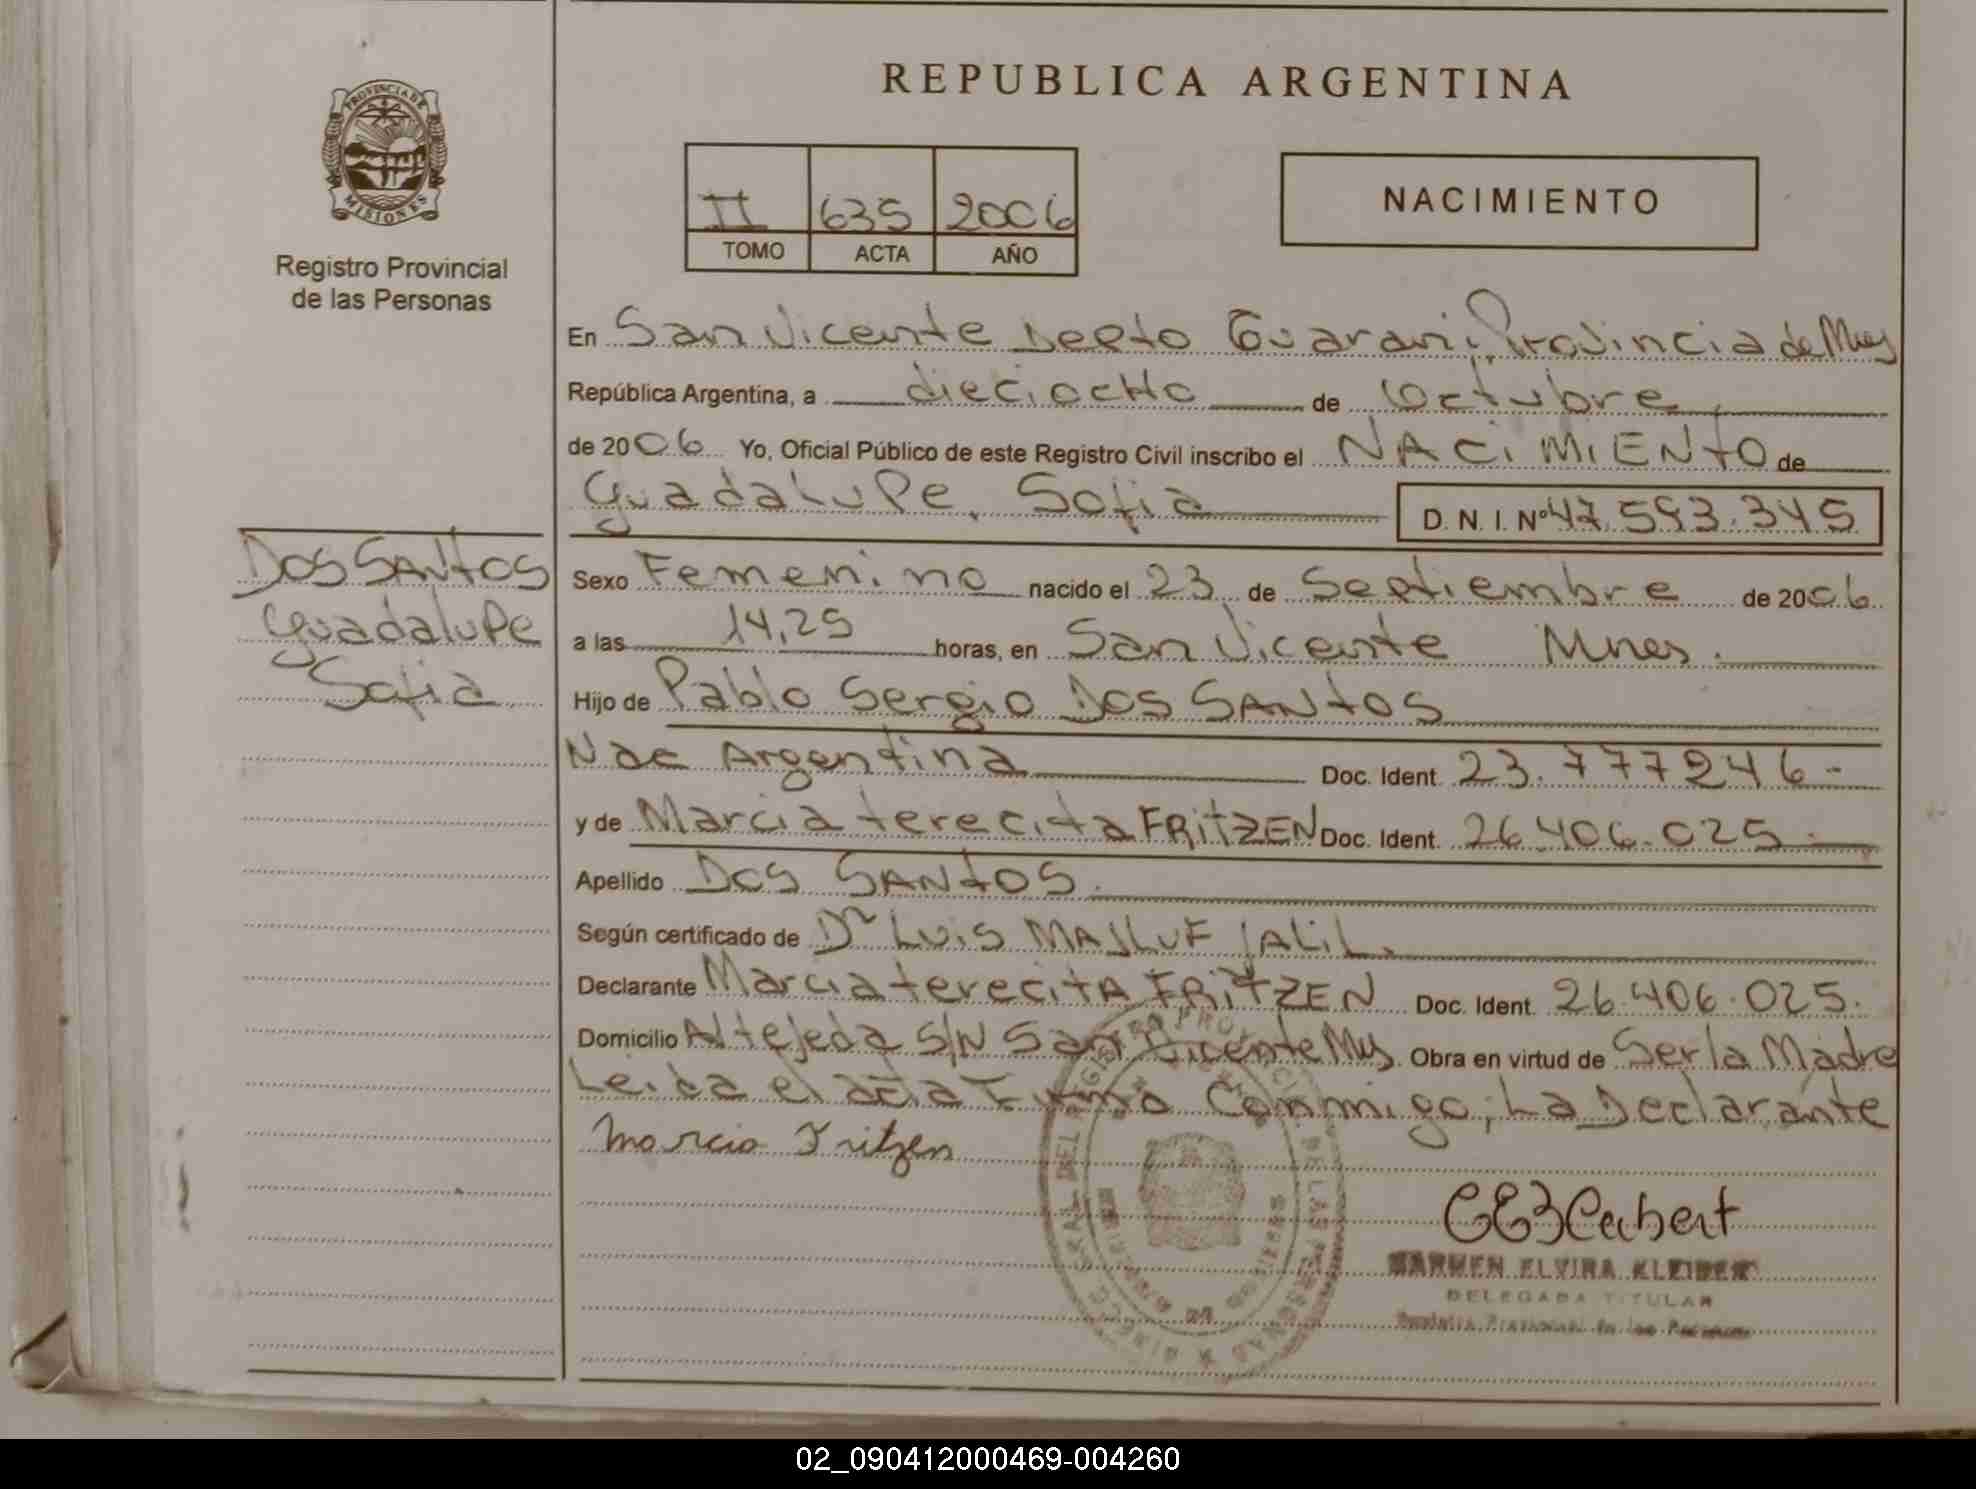 PROVINCIA DE
MISIONES
Registro Provincial
de las Personas
Dos Santos
Guadalupe
Sofia
REPUBLICA ARGENTINA
II 635 2006
TOMO ACTA AÑO
NACIMIENTO
En San Vicente Depto Guarani; Provincia de Mnes
República Argentina, a dieciocho de Octubre
de 2006 Yo, Oficial Público de este Registro Civil inscribo el NACIMIENTO de
Guadalupe Sofia D. N. I. Nº 47.593.345
Sexo Femenino nacido el 23 de Septiembre de 2006
a las 14,25 horas, en San Vicente Mnes.
Hijo de Pablo Sergio Dos SANtOS
Nac Argentina Doc. Ident. 23.777246-
y de Marcia terecita FRitZEN Doc. Ident. 26.406.025
Apellido Dos SANtOS
Según certificado de Dr LUiS MAJLUF JALiL.
Declarante Marcia terecitA FRitZEN Doc. Ident. 26.406.025.
Domicilio Al tejeda S/N San Vicente Mns. Obra en virtud de Ser la Madre
Leida el acta Firma Conmigo; La Declarante
Marcia Fritzen
CARMEN ELVIRA KLEIBER
DELEGADA TITULAR
Registro Provincial de las Personas
02_090412000469-004260